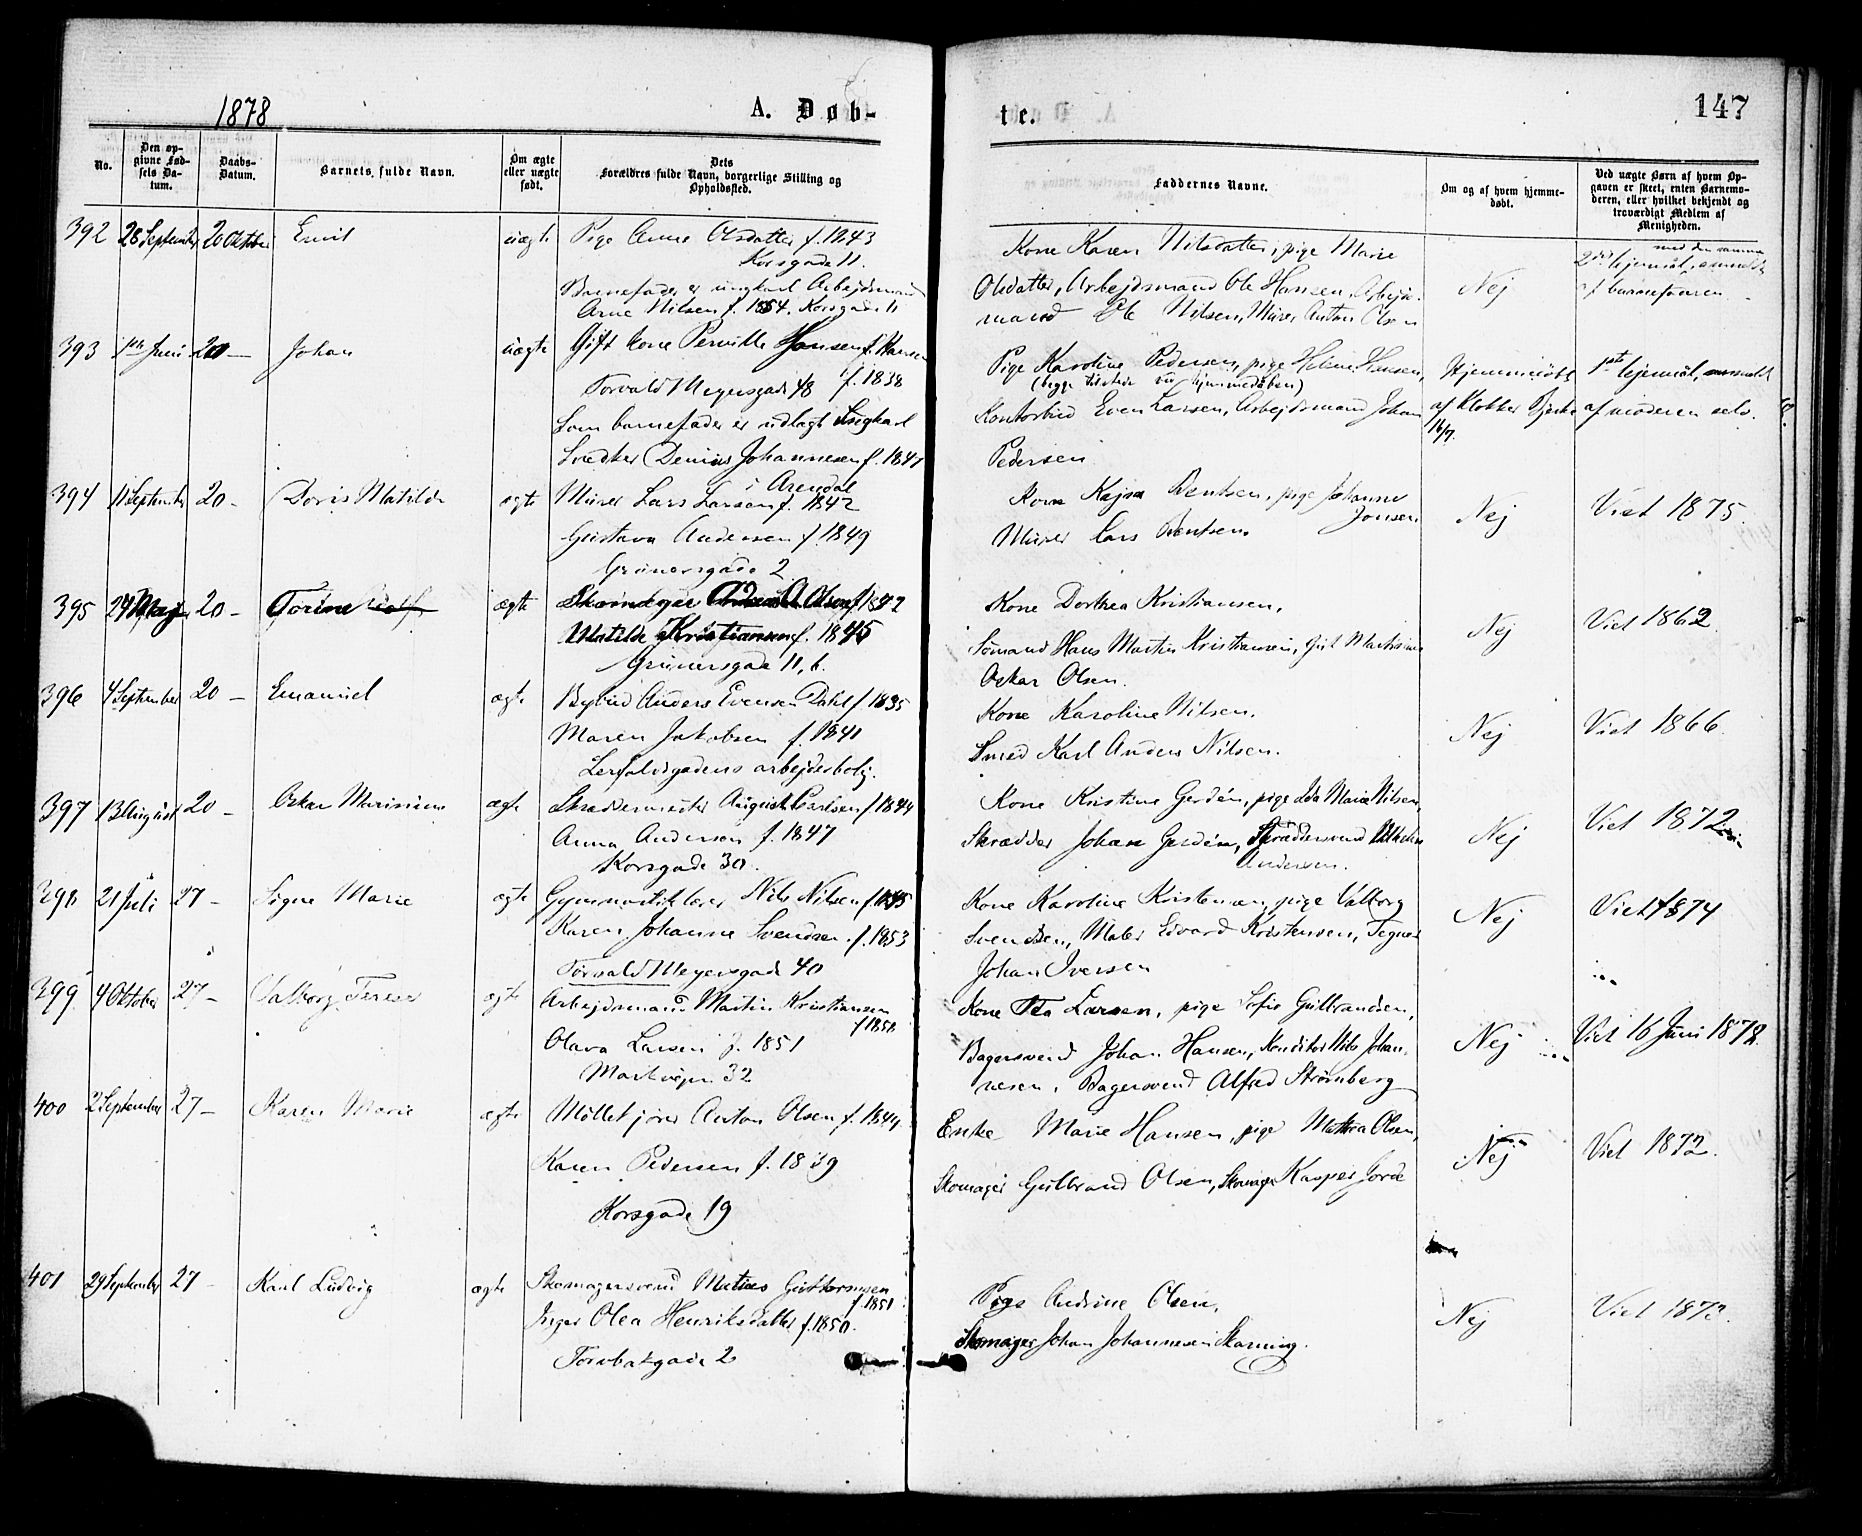 1878
A. Døb-
te.
147
No.
Den op-
givne Fød-
sels Da-
tum.
Daabs-
Datum.
Barnets fulde Navn.
Om ægte
eller uægte
født.
Dets
Forældres fulde Navn, borgerlige Stilling og
Opholdssted.
Faddernes Navne.
Om og af hvem hjemme-
døbt.
Ved uægte Børn af hvem Op-
gaven er skeet, enten Barnemo-
deren, eller hvilket bekjendt og
troværdigt Medlem af
Menigheden.
392 28 September 20 Oktober Emil uægte Pige Anne Olsdatter f. 1843
Korsgade 11.
Barnefader er ungkarl Arbejdsmand
Arne Nilsen f. 1854. Korsgade 11
Kone Karen Nilsdatter, pige Marie
Olsdatter, Arbejdsmand Ole Hansen, Arbejds-
mand Ole Nilsen, Murer Anton Olsen
Nej
med den samme
2det lejermål, anmeldt
af barnefaderen.
393 1ste Juni 20 — Johan uægte Gift kone Pernille Hansen f. Hansen
f. 1838
Torvald Meyersgade 48
Som barnefader er udlagt Ungkarl
Snedker Denius Johannesen f. 1847
i Arendal
Pige Karoline Pedersen, pige Heline Hansen,
(begge tilstede ved hjemmedåben)
Kontorbud Even Larsen, Arbejdsmand Johan
Pedersen
Hjemmedøbt
af Klokker Bjerke
16/7.
1ste lejermål, anmeldt
af moderen selv.
394 11 September 20 — Doris Matilde ægte Murer Lars Larsen f. 1842
Gustava Andersen f. 1849
Grünersgade 2
Kone Kajsa Bentsen, pige Johanne
Jonsen
Murer Lars Bentsen.
Nej
Viet 1875.
395 24 Maj 20 — Torine ægte Olsen f. 1842
Matilde Kristiansen f. 1845
Grünersgade 11, b.
Kone Dorthea Kristiansen,
Sømand Hans Martin Kristiansen,
Oskar Olsen.
Nej
Viet 1862.
396 4 September 20 — Emanuel ægte Bybud Anders Evensen Dahl f. 1835
Maren Jakobsen f. 1841
Lerfaldsgadens arbejderbolig.
Kone Karoline Nilsen.
Smed Karl Anders Nilsen.
Nej
Viet 1866.
397 13 August 20 — Oskar Marinius ægte Skræddermester August Carlsen f. 1844
Anna Andersen f. 1847
Korsgade 30.
Kone Kristine Gerdén, pige Ida Marie Nilsen,
Skrædder Johan Gerdén, Skræddersvend Vilhelm
Andersen.
Nej
Viet 1872
398 21 Juli 27 — Signe Marie ægte Gymnastiklærer Nils Nilsen f. 1845
Karen Johanne Svendsen f. 1853
Torvald Meyersgade 40
Kone Karoline Kristensen, pige Valborg
Svendsen, Maler Edvard Kristensen, Tegner
Johan Iversen
Nej
Viet 1874
399 4 Oktober 27 — Valborg Terese ægte Arbejdsmand Martin Kristiansen
f. 1850
Olava Larsen f. 1851
Markvejen 32
Kone Larsen, pige Sofie Gulbrandsen,
Bagersvend Johan Hansen, Konditor Nils Johan-
nesen, Bagersvend Alfred Strømberg
Nej
Viet 16 Juni 1878.
400 2 September 27 — Karen Marie ægte Mølletjener Anton Olsen f. 1844
Karen Pedersen f. 1839
Korsgade 19
Enke Marie Hansen, pige Mathea Olsen,
Skomager Gulbrand Olsen, Skomager Kasper
Nej
Viet 1872.
401 29 September 27 — Karl Ludvig ægte Skomagersvend Matias Guttormsen
f. 1851
Inger Olea Henriksdatter f. 1850.
Torvbakgade 2
Pige Andrine Olsen,
Skomager Johan Johannesen Skarning.
Nej
Viet 1873.